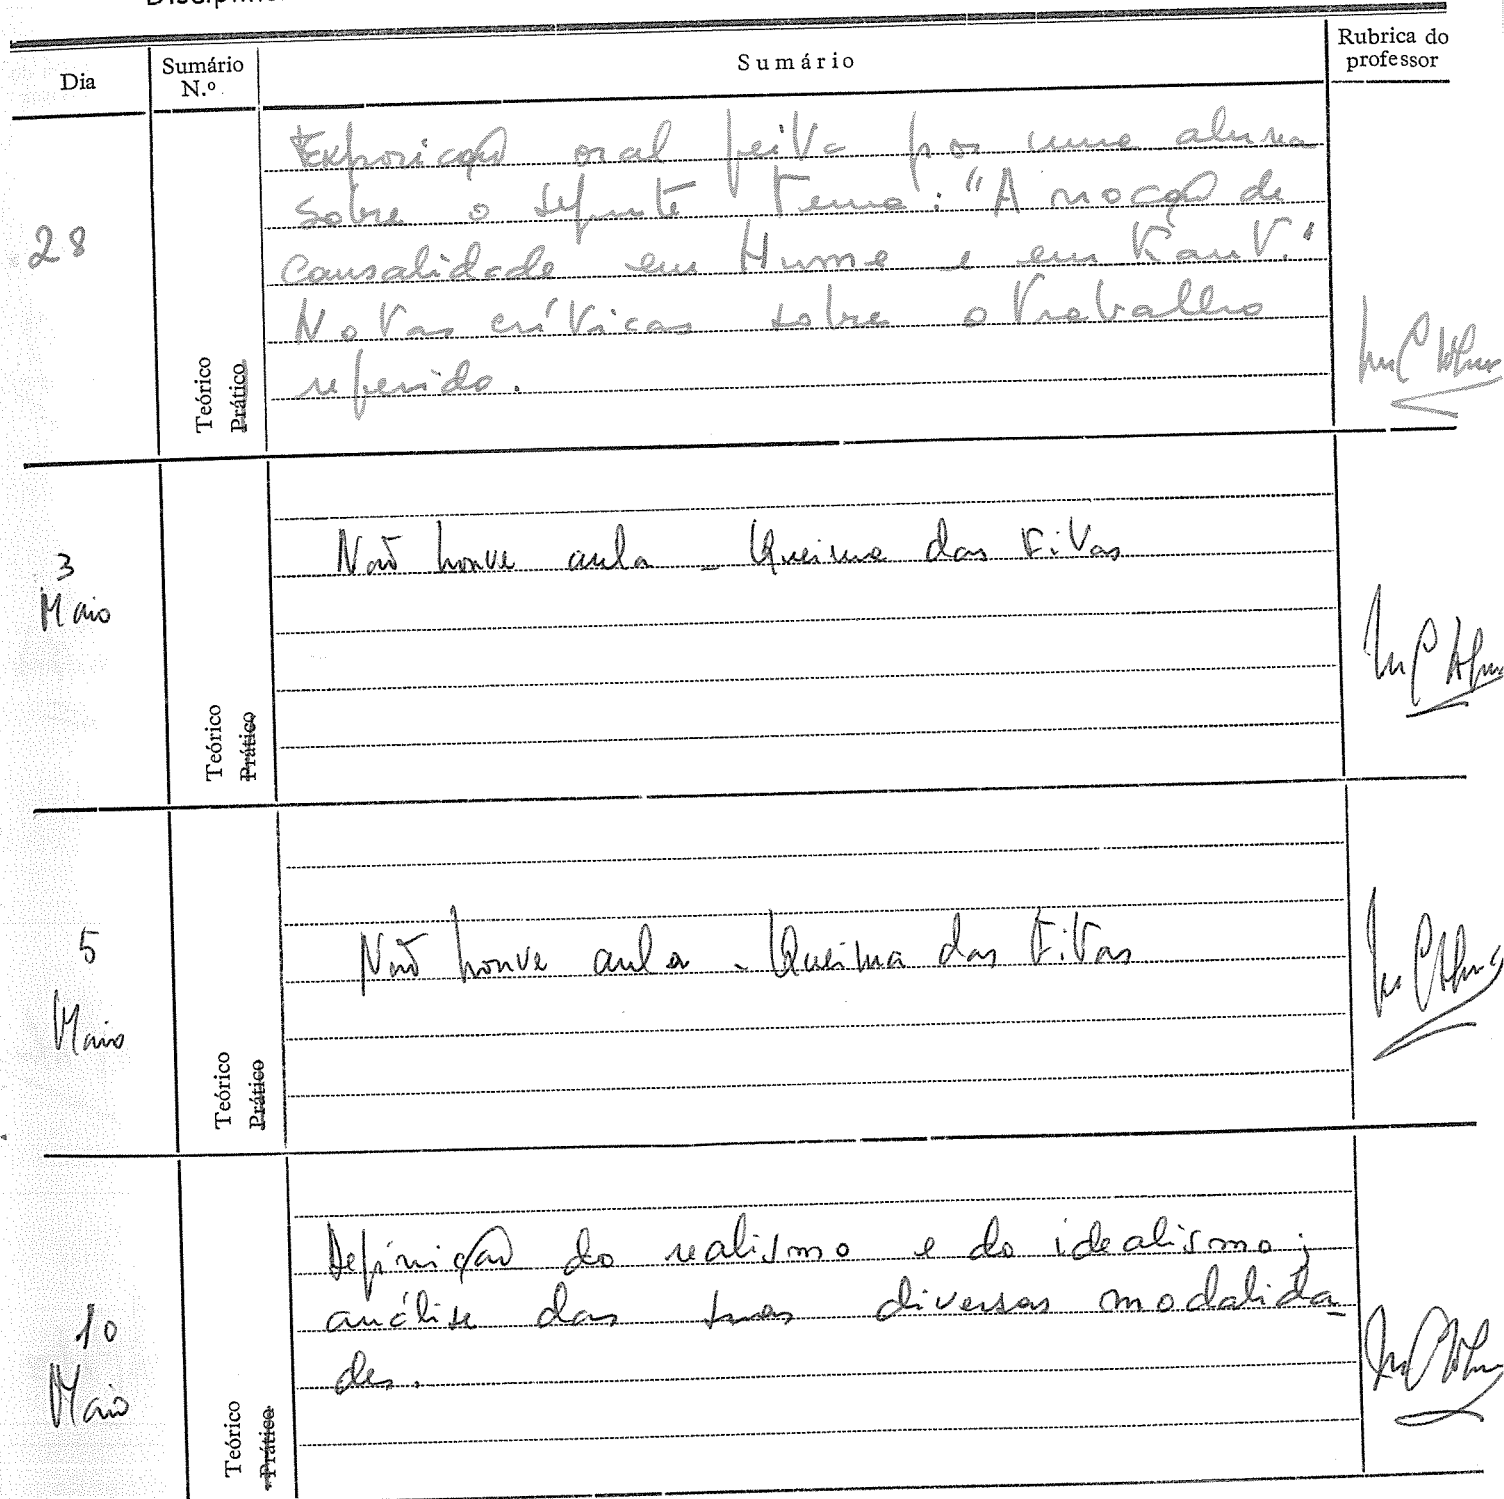 Dia
Sumário
N.º
Sumário
Rubrica do
professor
28
Teórico
Prático
Exposição oral feita por uma aluna
sobre o seguinte tema: "A noção de
causalidade em Hume e em Kant."
Notas críticas sobre o trabalho
referido.
3
Maio
Teórico
Prático
Não houve aula - Queima das Fitas
5
Maio
Teórico
Prático
Não houve aula - Queima das Fitas
10
Maio
Teórico
Prático
Definição do realismo e do idealismo;
análise das suas diversas modalida-
des.